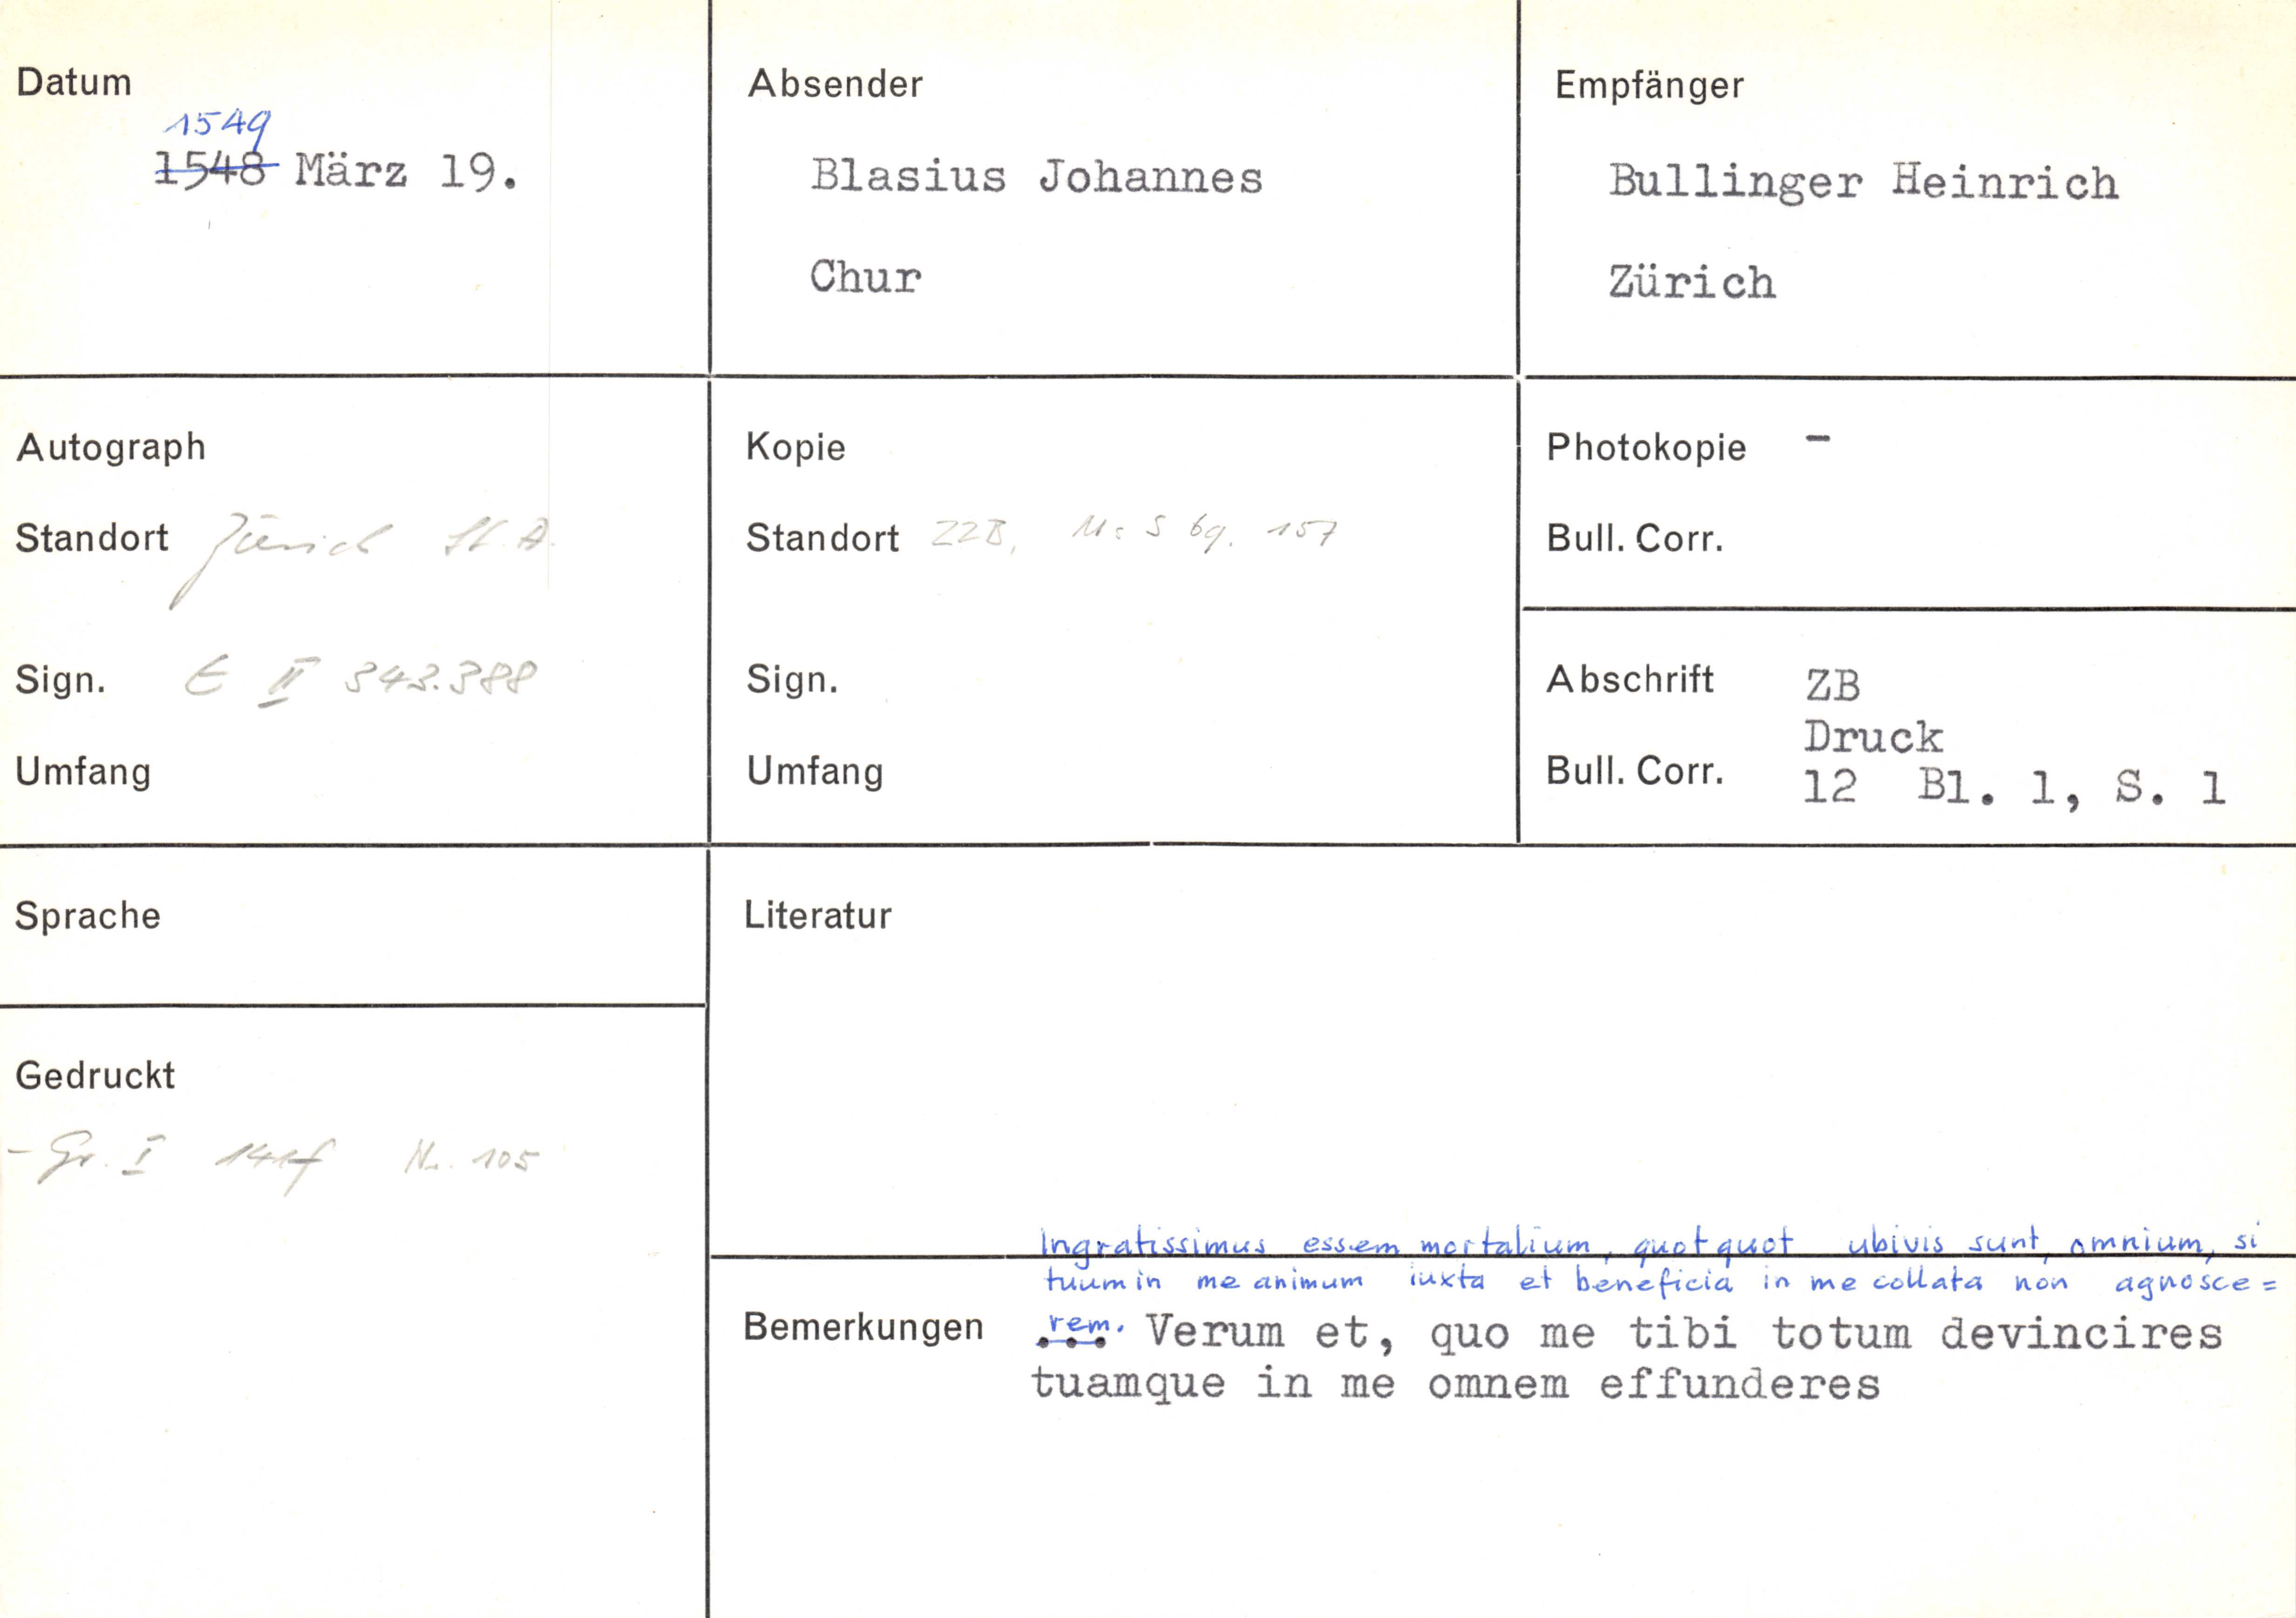 Datum
1549
1548 März 19.
Absender
Blasius Johannes
Chur
Empfänger
Bullinger Heinrich
Zürich
Autograph
Standort Zürich St. A.
Sign. E II 343.388
Umfang
Kopie
Standort ZZB, Ms S 69. 157
Sign.
Umfang
Photokopie -
Bull. Corr.
Abschrift ZB
Druck
Bull. Corr. 12 Bl. 1, S. 1
Sprache
Gedruckt
- Gr. I Nr. 105
Literatur
Ingratissimus essem mortalium, quotquot ubivis sunt, omnium, si
tuum in me animum iuxta et beneficia in me collata non agnosce=
Bemerkungen rem. ... Verum et, quo me tibi totum devincires
tuamque in me omnem effunderes